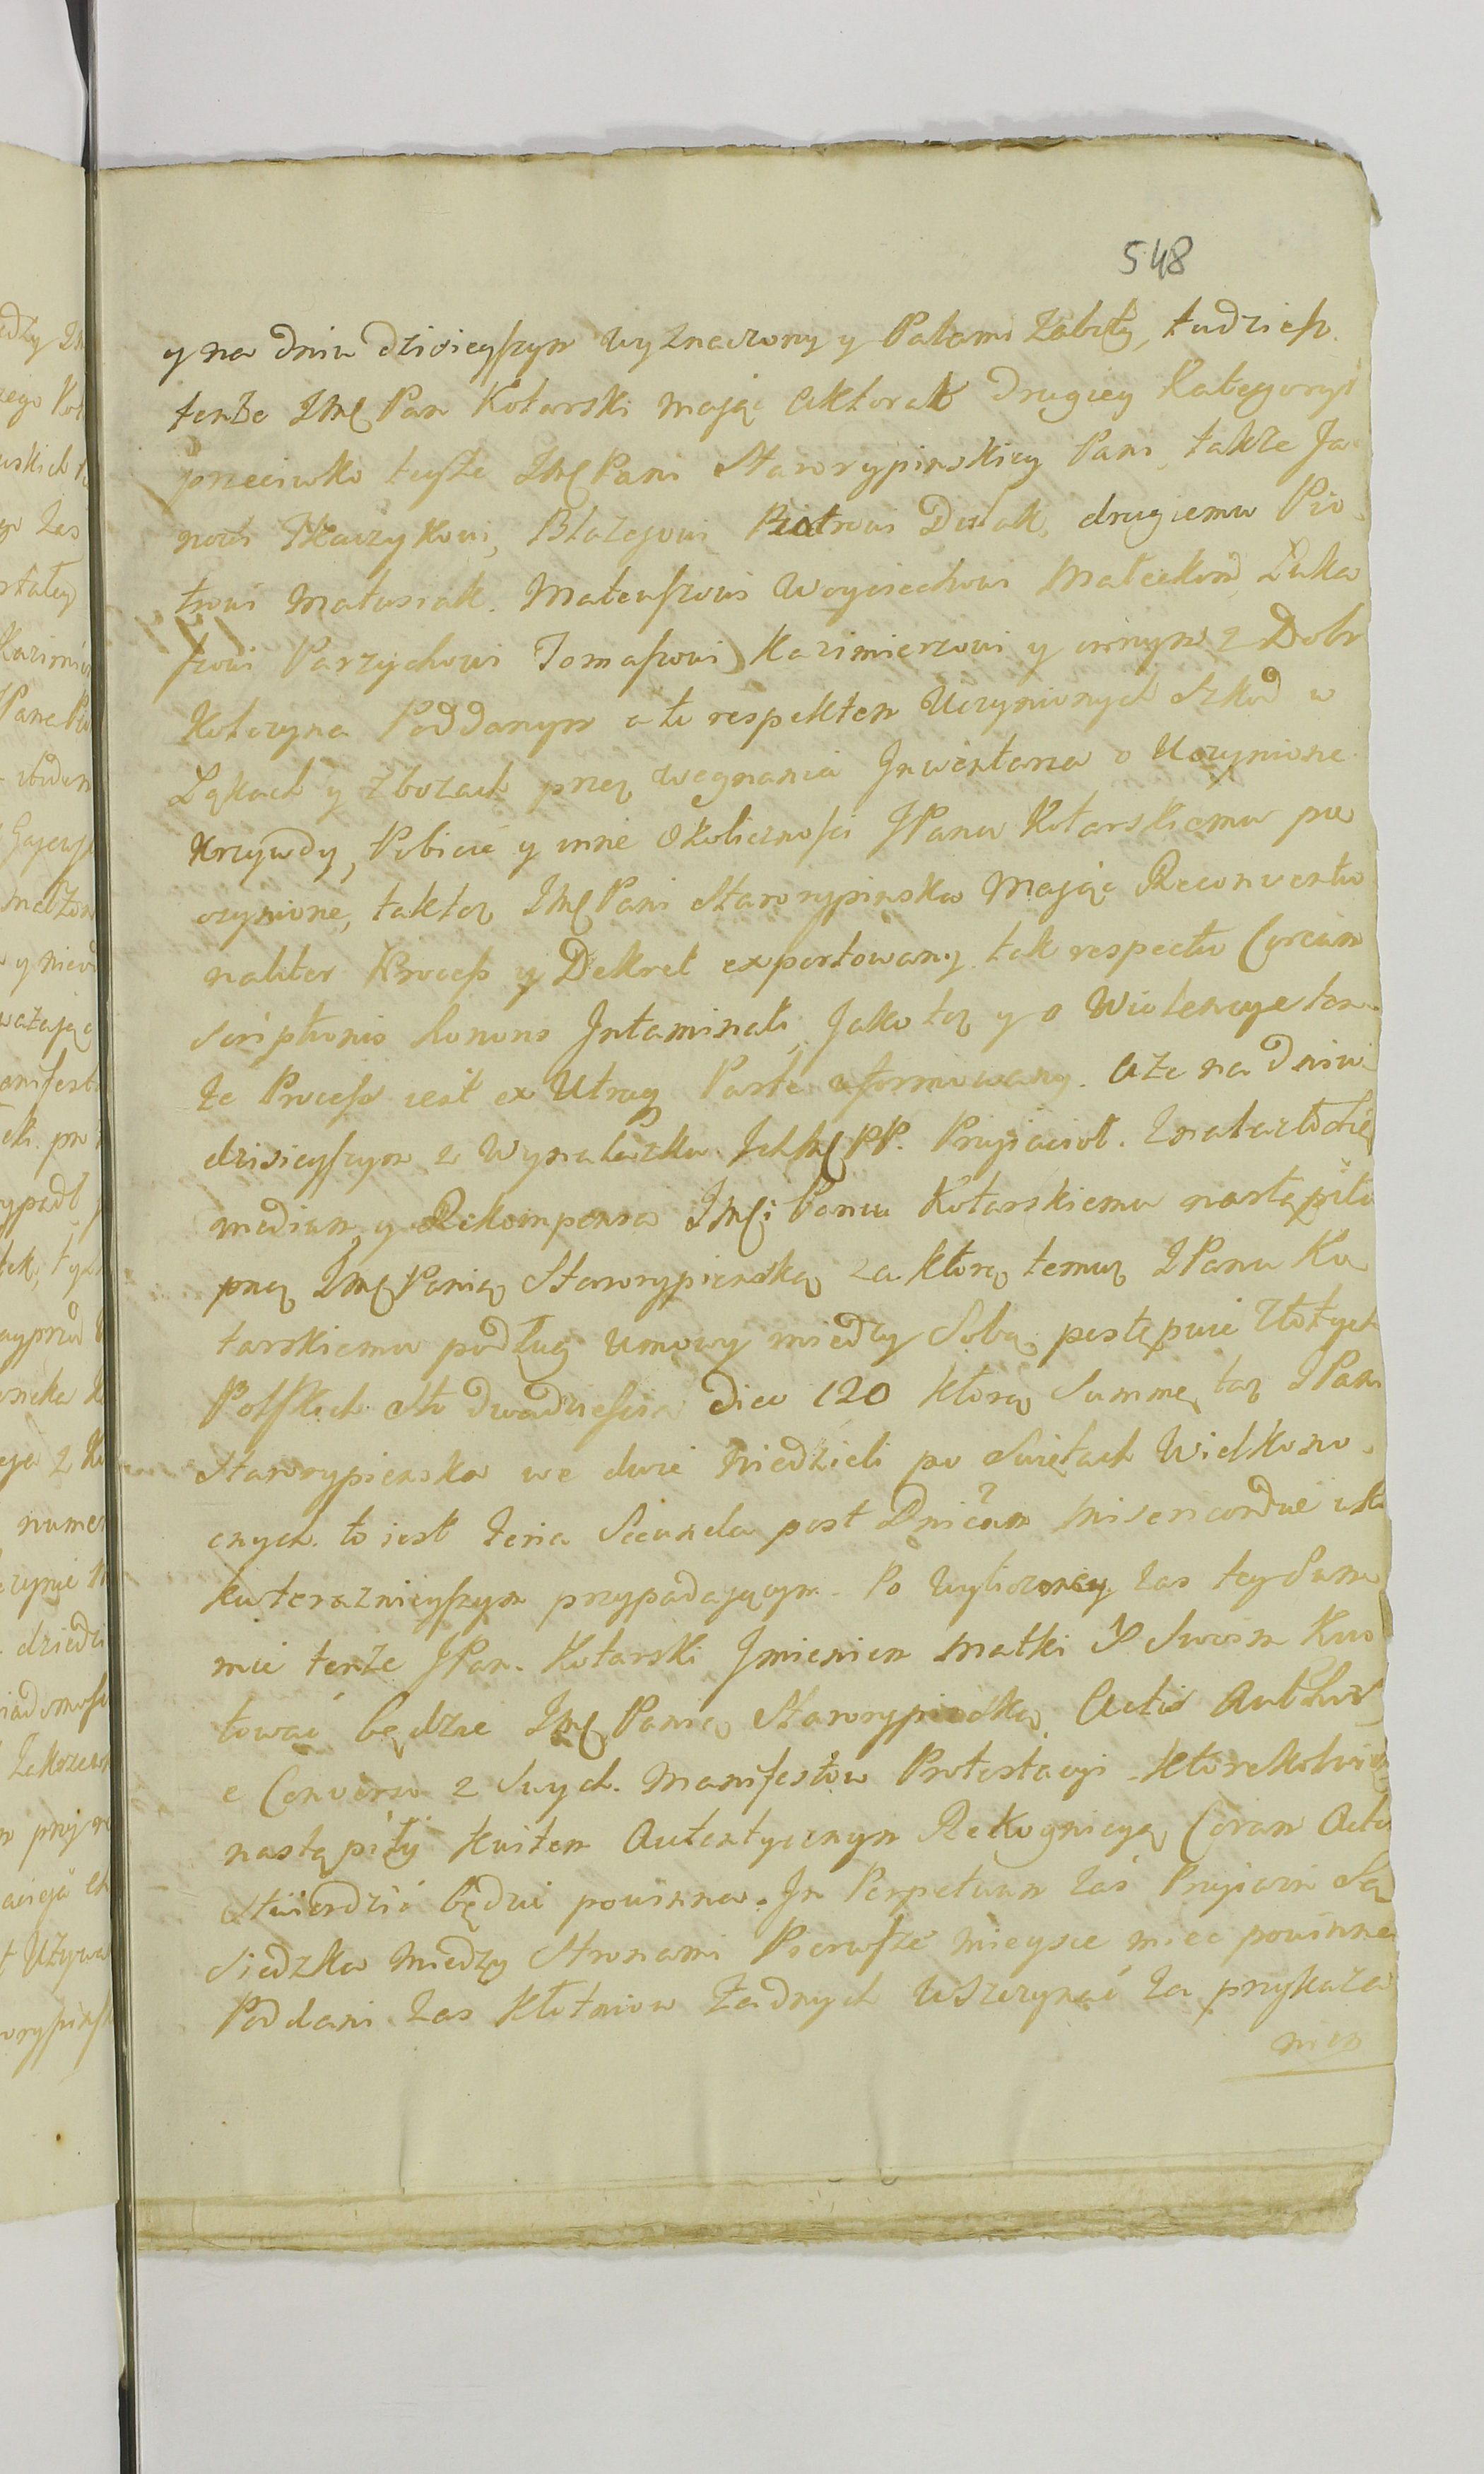 548
y na dniu dzisieyszym wyznaczony y Palami zabity, tudziesz
tenże JMć Pan Kotarski mając Aktorat drugiey Kategoryi
przeciwko teyże JMć Pani Starorypinskiey Pani, także Ja
nowi Tkaczykowi, Błazejowi Piotrowi Dudak, drugiemu Pio
trowi Matusiak. Mateuszowi Woyciechowi Małeckim, Łuka
szowi Parzychowi Tomaszowi Kazimierzowi y innym z Dobr
Poddanym o to respektem Uczynionych Szkod w
Łąkach y zbozach przez wegnania Jnwentarza o Uczynione
Krzywdy, Pobicie y inne Okolicznosci JPanu Kotarskiemu po
czynione, taktez JMć Pani Starorypinska Mając Reconventio
naliter Process y Dekret exportowany, tak respectu Circum
scriptionis honoris Jntaminati, Jako tez y o Wiolencye ten
że Process iest ex Utraq Parte uformowany. Aże na dniu
dzisieyszym z Wynalazku JchMć PP. Przyiacioł. Znalazło się
medium y Rekompensa JMći Panu Kotarskiemu nastąpiła
przez JMć Panią Starorypienską za ktorą temuz JPanu Ko
tarskiemu podług umowy miedzy Sobą postępuie Złotych
Polskich Sto dwadziescia dico 120 ktorą Summę taz JPani
Starorypienska we dwie Niedzieli po Swiętach Wielkono
cnych to iest Feria Secunda post Dnicam Misericordiae w Ro
ku teraznieyszym przypadającym. Po wyliczoney zas tey Sum
mie tenże JPan Kotarski Jmieniem Matki y Swoim Kwi
tować będzie JMć Panią Starorypinską Actis Authen
e Converso z Swych Manifestow Protestacyi ktorekolwiek
nastąpiły kwitem Autentycznym Rekognicyą Coram Actis
stwierdzić będzie powinna. Jn Perpetuum zaś Przyiazn Są
siedzka między Stronami Pierwsze mieysce miec powinna
Poddani zas kłotniow Zadnych Wszczynać za przykaza
niem